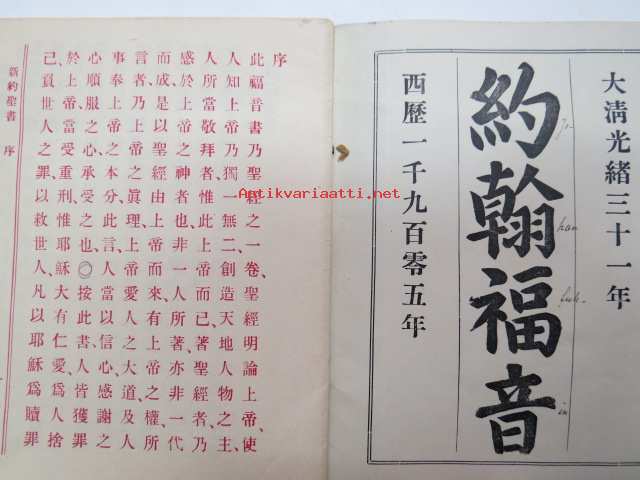 大清光緒三十一年
約翰福音
Jo
han
fuh
in
西歷一千九百零五年
序
此福音書乃聖經之一卷、聖經明論上帝、使
人知上帝乃獨一無二、創造天地人物之主、
人所當敬拜者、惟此上帝而已、著聖經者、乃
感於上帝之神者也、非一人所著、亦非一代
而成、是以聖經由上帝而來、有上帝之權、所
言者、乃上帝之眞理、上帝愛人之大道、及人
事奉上帝之本分、此言、人當以信心感謝之
心、順服之心、承受之也、◯按此書、人皆獲罪
於上帝、當受重刑、惟耶穌大有仁愛、爲人捨
己、負世人之罪、以救世人、凡以耶穌爲贖罪
新約聖書 序
Antikvariaatti.net